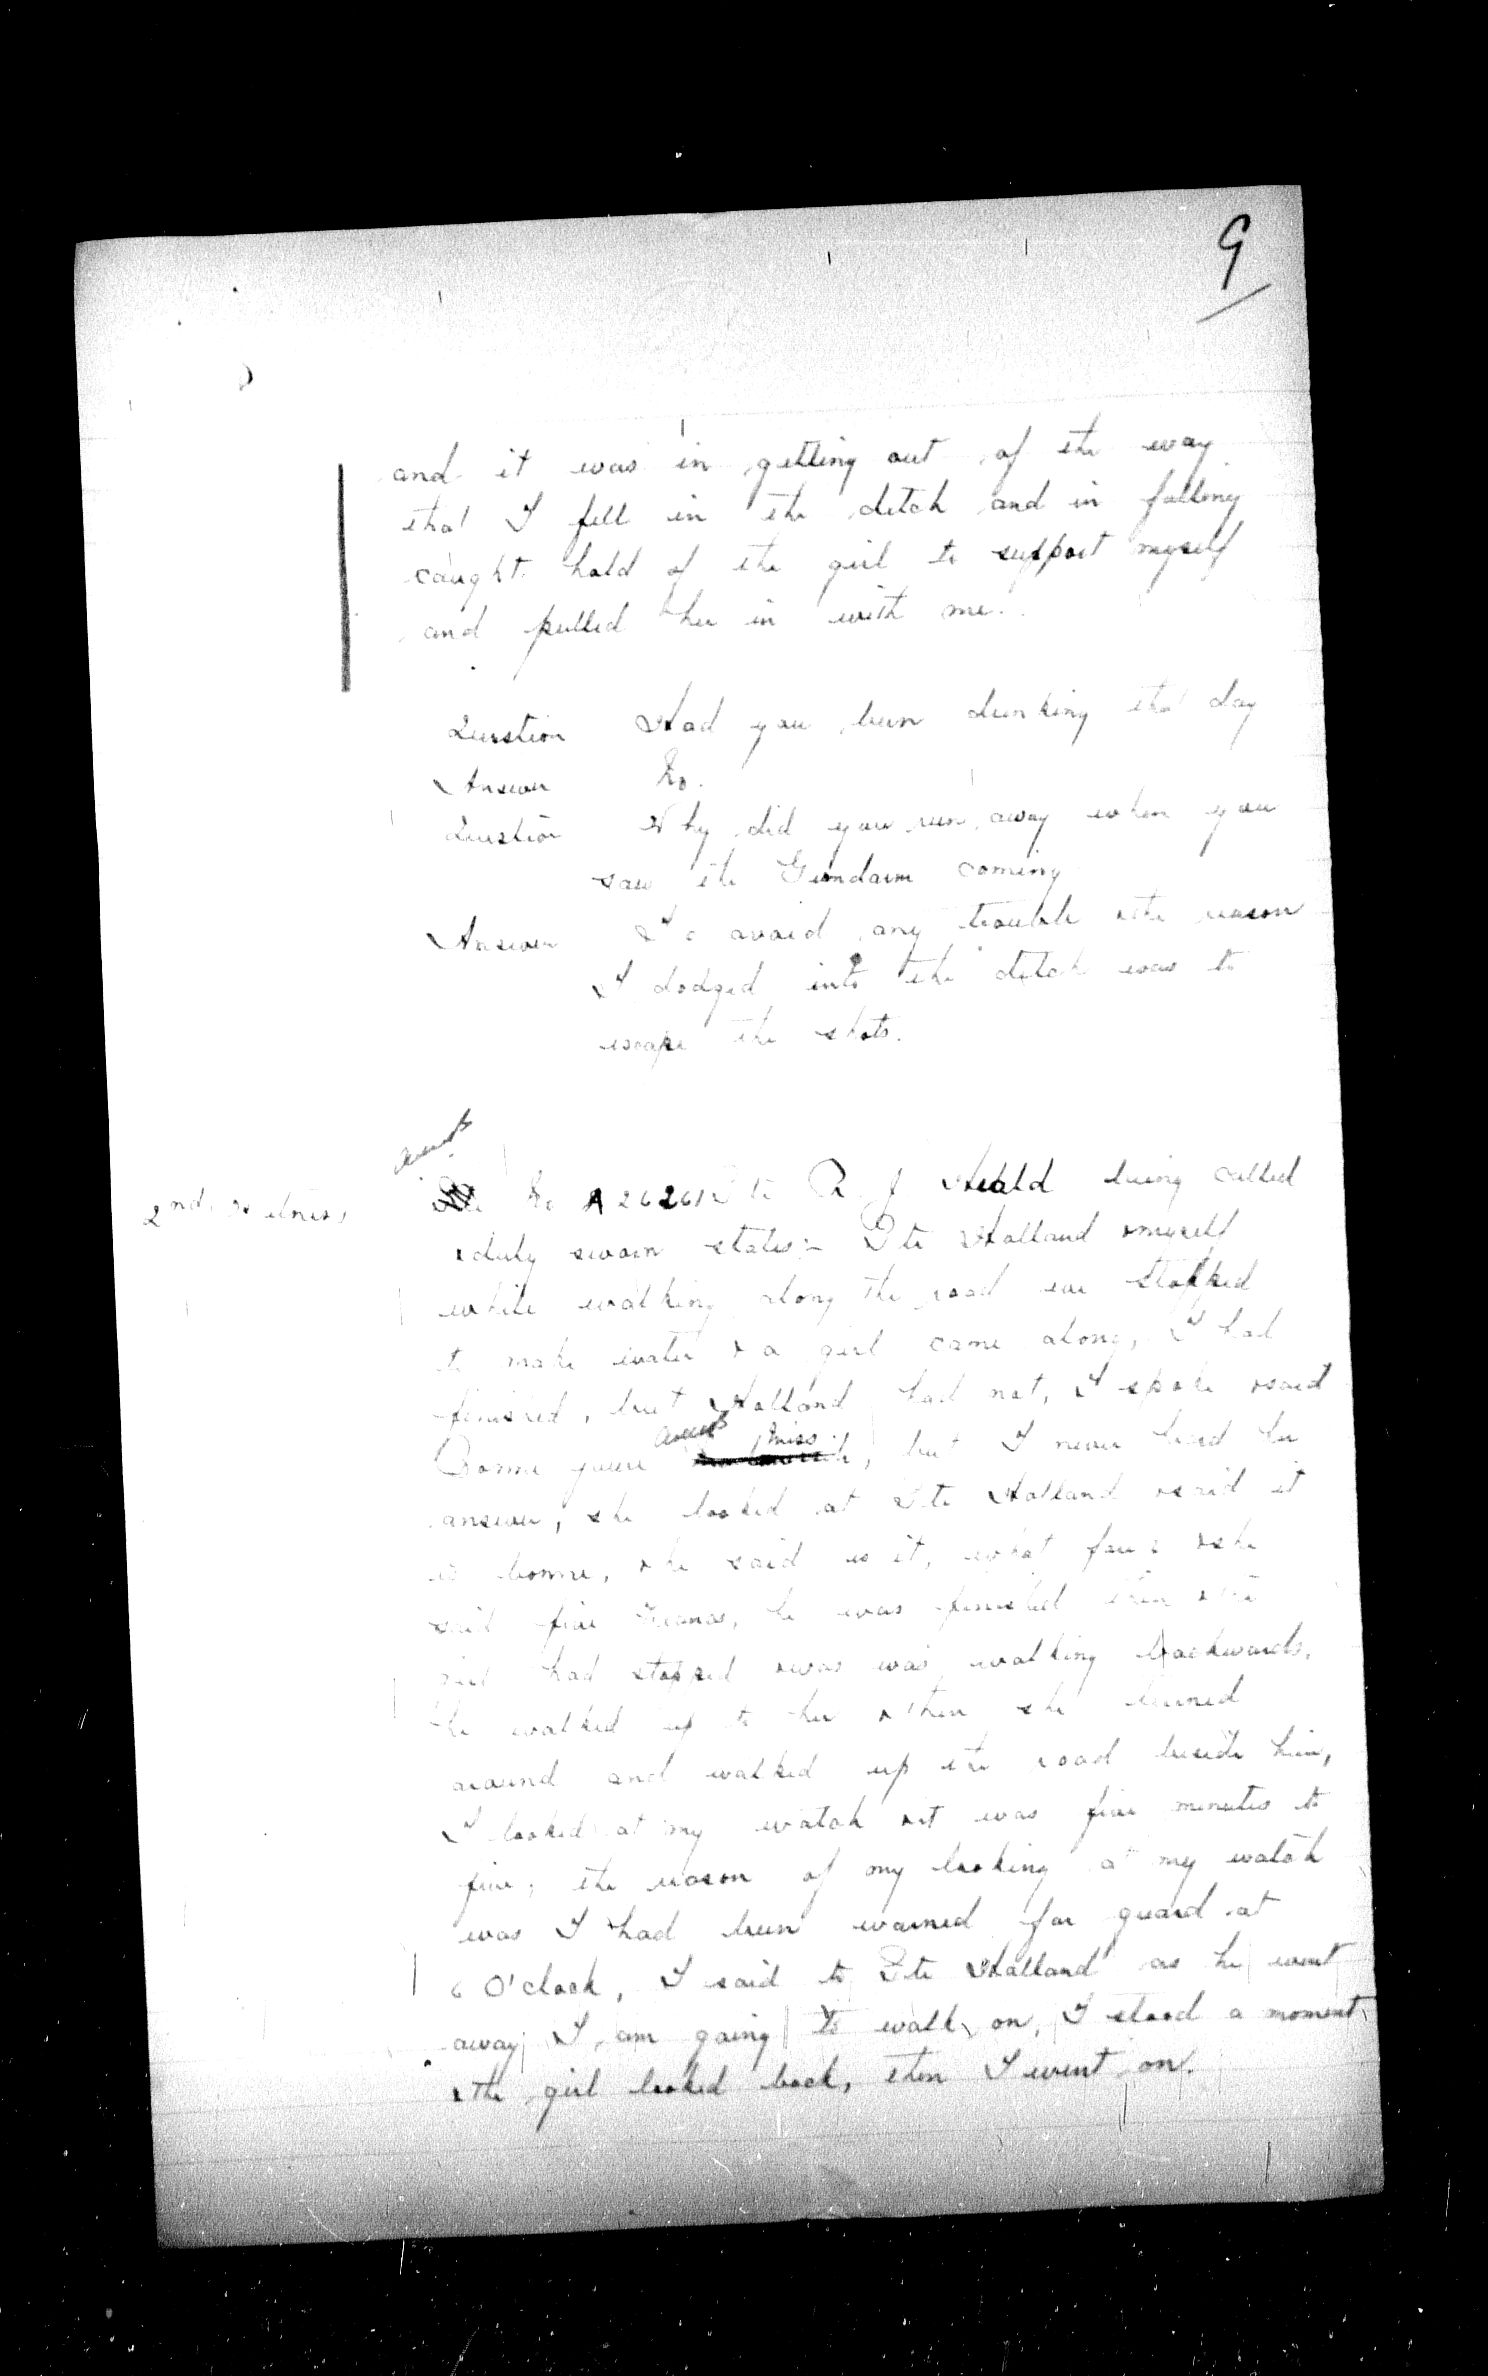 9
and it was in getting out of the way
that I fell in the ditch and in falling
caught hold of the girl to support myself
and pulled her in with me.
Question Had you been drinking that day
Answer No.
Question Why did you run away when you
saw the Gendarm coming
Answer To avoid any trouble & the reason
I dodged into the ditch was to
escape the shots.
2nd Witness
No A 26261 Pte R. J. Heald being called
& duly sworn states:- Pte Holland & myself
while walking along the road we stopped
to make water & a girl came along, I had
finished, but Holland had not, I spoke & said
Bonne guere Miss, but I never heard her
answer, she looked at Pte Holland & said it
is bonne, & he said is it, what for? & she
said five francs, he was finished then & the
girl had stopped & was was walking backwards,
he walked up to her & then she turned
around and walked up the road beside him,
I looked at my watch & it was five minutes to
five, the reason of my looking at my watch
was I had been warned for guard at
6 O'clock, I said to Pte Holland as he went
away I am going to walk on, I stood a moment
& the girl looked back, then I went on.